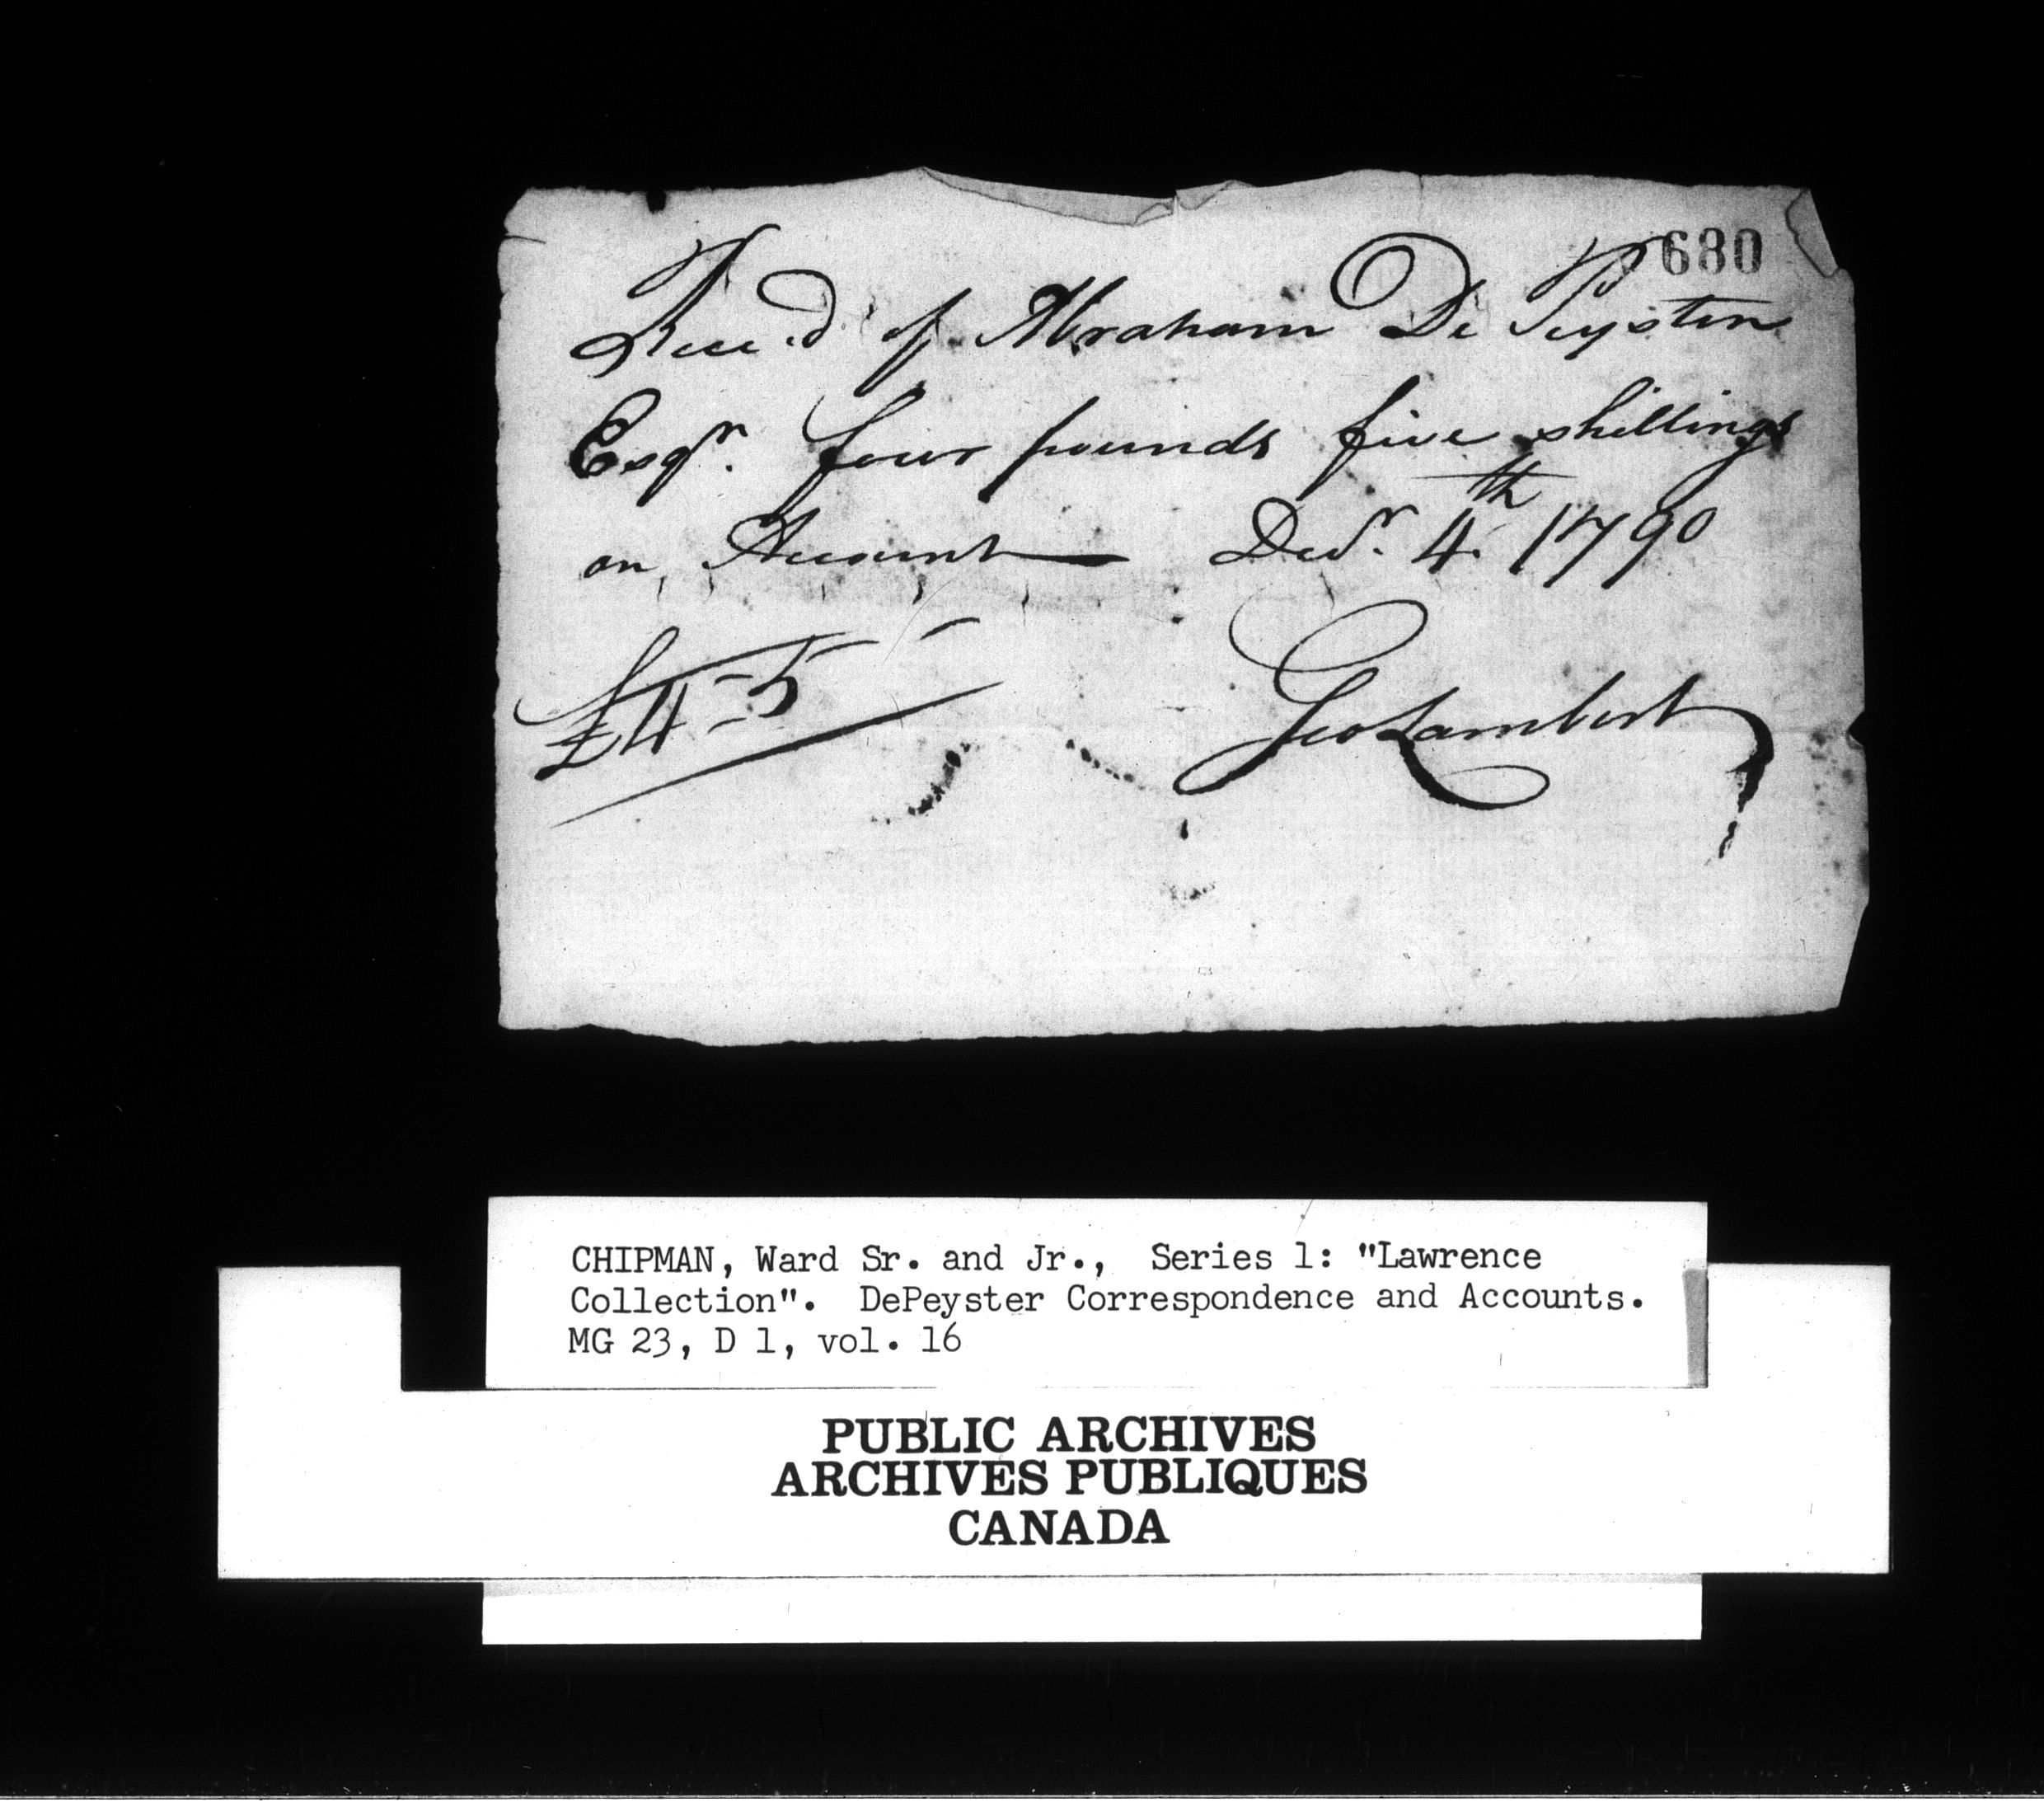 680
Rece.d of Abraham De Peyster
Esqr. four pounds five shillings
on Account — Decr. 4th 1790
£4-5
Geo Lambert
CHIPMAN, Ward Sr. and Jr., Series 1: "Lawrence
Collection". DePeyster Correspondence and Accounts.
MG 23, D 1, vol. 16
PUBLIC ARCHIVES
ARCHIVES PUBLIQUES
CANADA